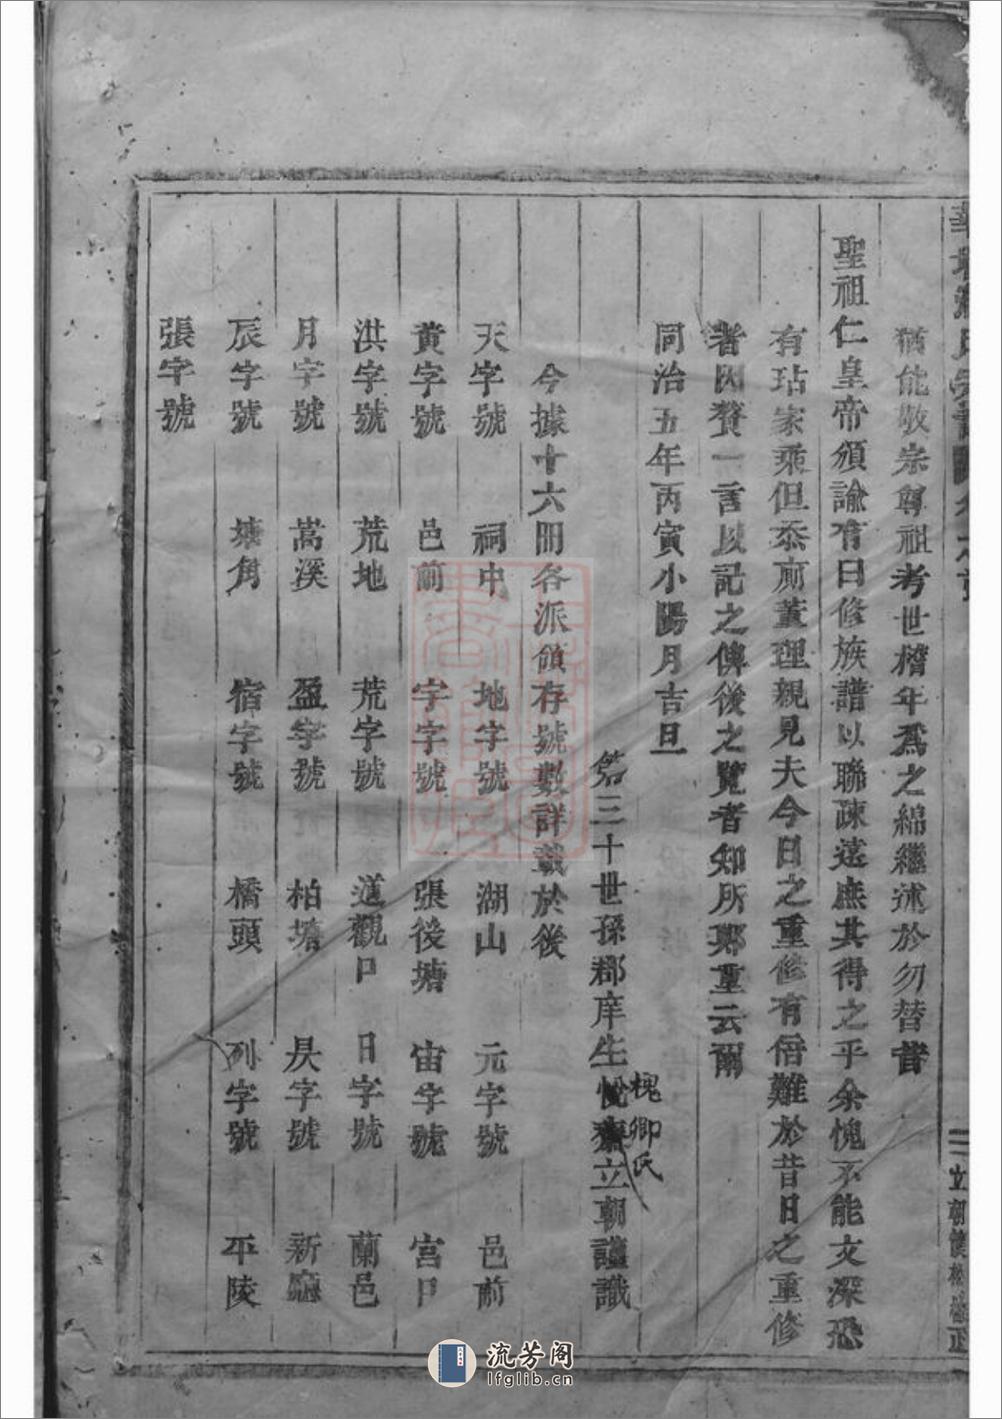 猶能敬宗尊祖考世稽年爲之綿繼述於勿替昔
聖祖仁皇帝頒諭有曰修族譜以聯疎遠庶其得之乎余愧不能文深恐
有玷家乘但忝廁董理親見夫今日之重修有倍難於昔日之重修
者因贅一言以記之俾後之覽者知所鄭重云爾
同治五年丙寅小陽月吉旦
第三十世孫郡庠生悅齋立朝謹識
槐卿氏
今據十六冊各派領存號數詳載於後
天字號 祠中 地字號 湖山 元字號 邑前
黃字號 邑前 宇字號 張後塘 宙字號 宮口
洪字號 荒地 荒字號 道觀口 日字號 蘭邑
月字號 嵩溪 盈字號 柏塘 昃字號 新
辰字號 塘角 宿字號 橋頭 列字號 平陵
張字號
流芳阁
lfglib.cn